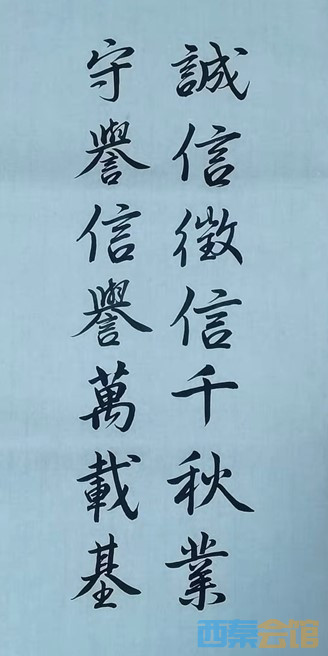 誠信徵信千秋業
守譽信譽萬載基
西秦会馆